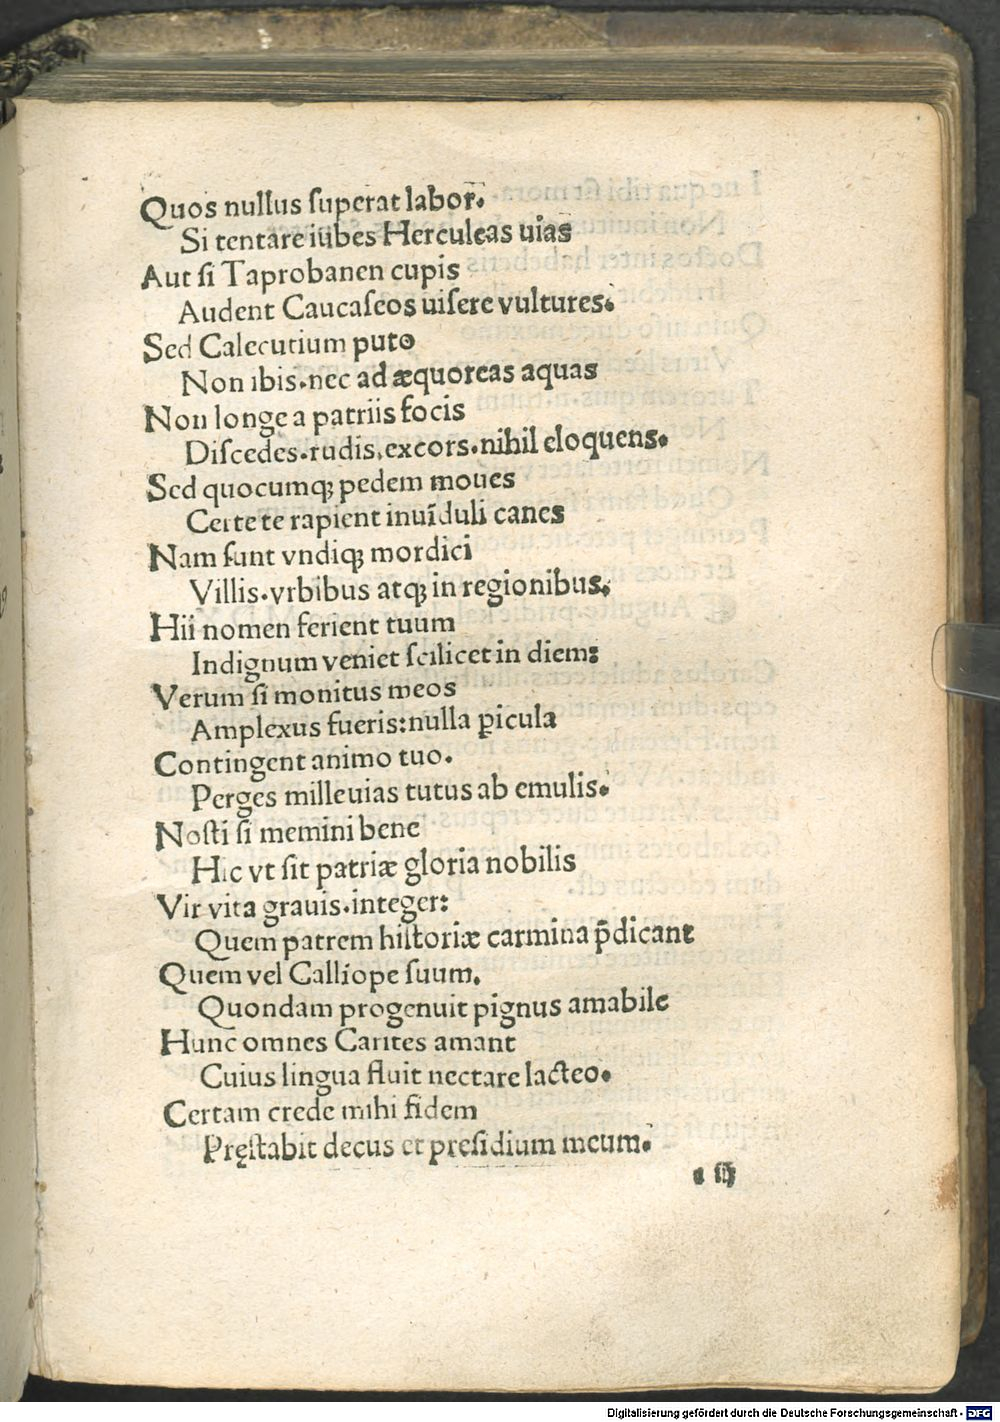 Quos nullus ſuperat labor.
Si tentare iubes Herculeas uias
Aut ſi Taprobanen cupis
Audent Caucaſeos uiſere vultures.
Sed Calecutium puto
Non ibis.nec ad æquoreas aquas
Non longe a patriis focis
Diſcedes.rudis.excors.nihil eloquens.
Sed quocumqꝫ pedem moues
Certe te rapient inuīduli canes
Nam ſunt vndiqꝫ mordici
Villis.vrbibus atqꝫ in regionibus.
Hii nomen ferient tuum
Indignum veniet ſcilicet in diem:
Verum ſi monitus meos
Amplexus fueris:nulla ꝑicula
Contingent animo tuo.
Perges mille uias tutus ab emulis.
Noſti ſi memini bene
Hic vt ſit patriæ gloria nobilis
Vir vita grauis.integer:
Quem patrem hiſtoriæ carmina p̄dicant
Quem vel Calliope ſuum.
Quondam progenuit pignus amabile
Hunc omnes Carites amant
Cuius lingua fluit nectare lacteo.
Certam crede mihi fidem
Pręſtabit decus et preſidium meum.
Digitalisierung gefördert durch die Deutsche Forschungsgemeinschaft - DFG